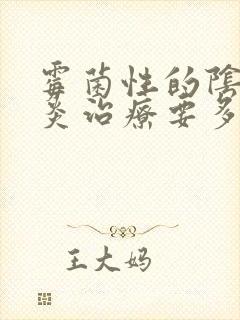 霉菌性的陰
炎治療要多
王大妈